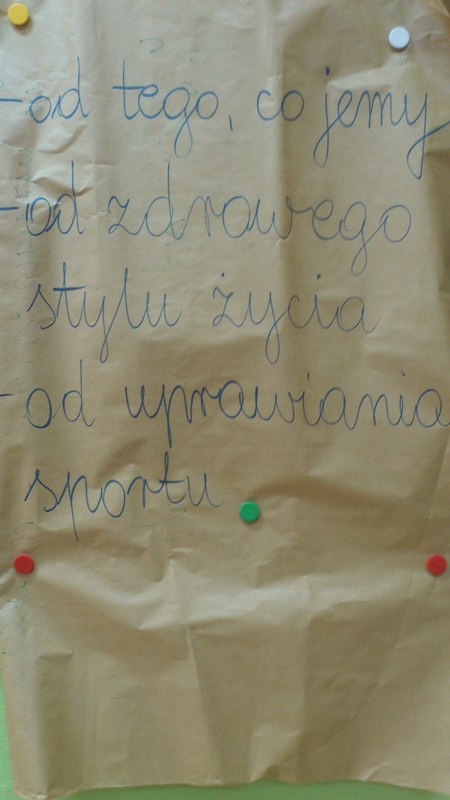 - od tego, co jemy
- od zdrowego
stylu życia
- od uprawiania
sportu